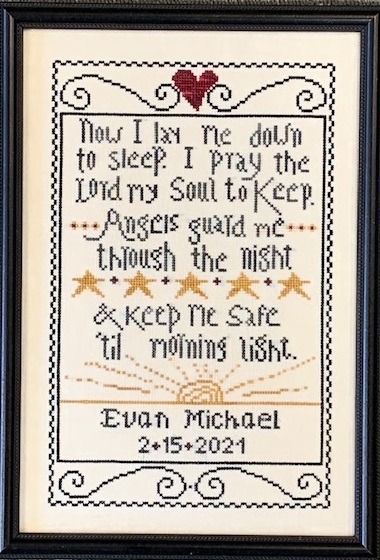 Now I lay me down
to sleep I pray the
Lord my Soul to Keep.
Angels guard me
through the night
& Keep Me Safe
'til morning light.
Evan Michael
2•15•2021